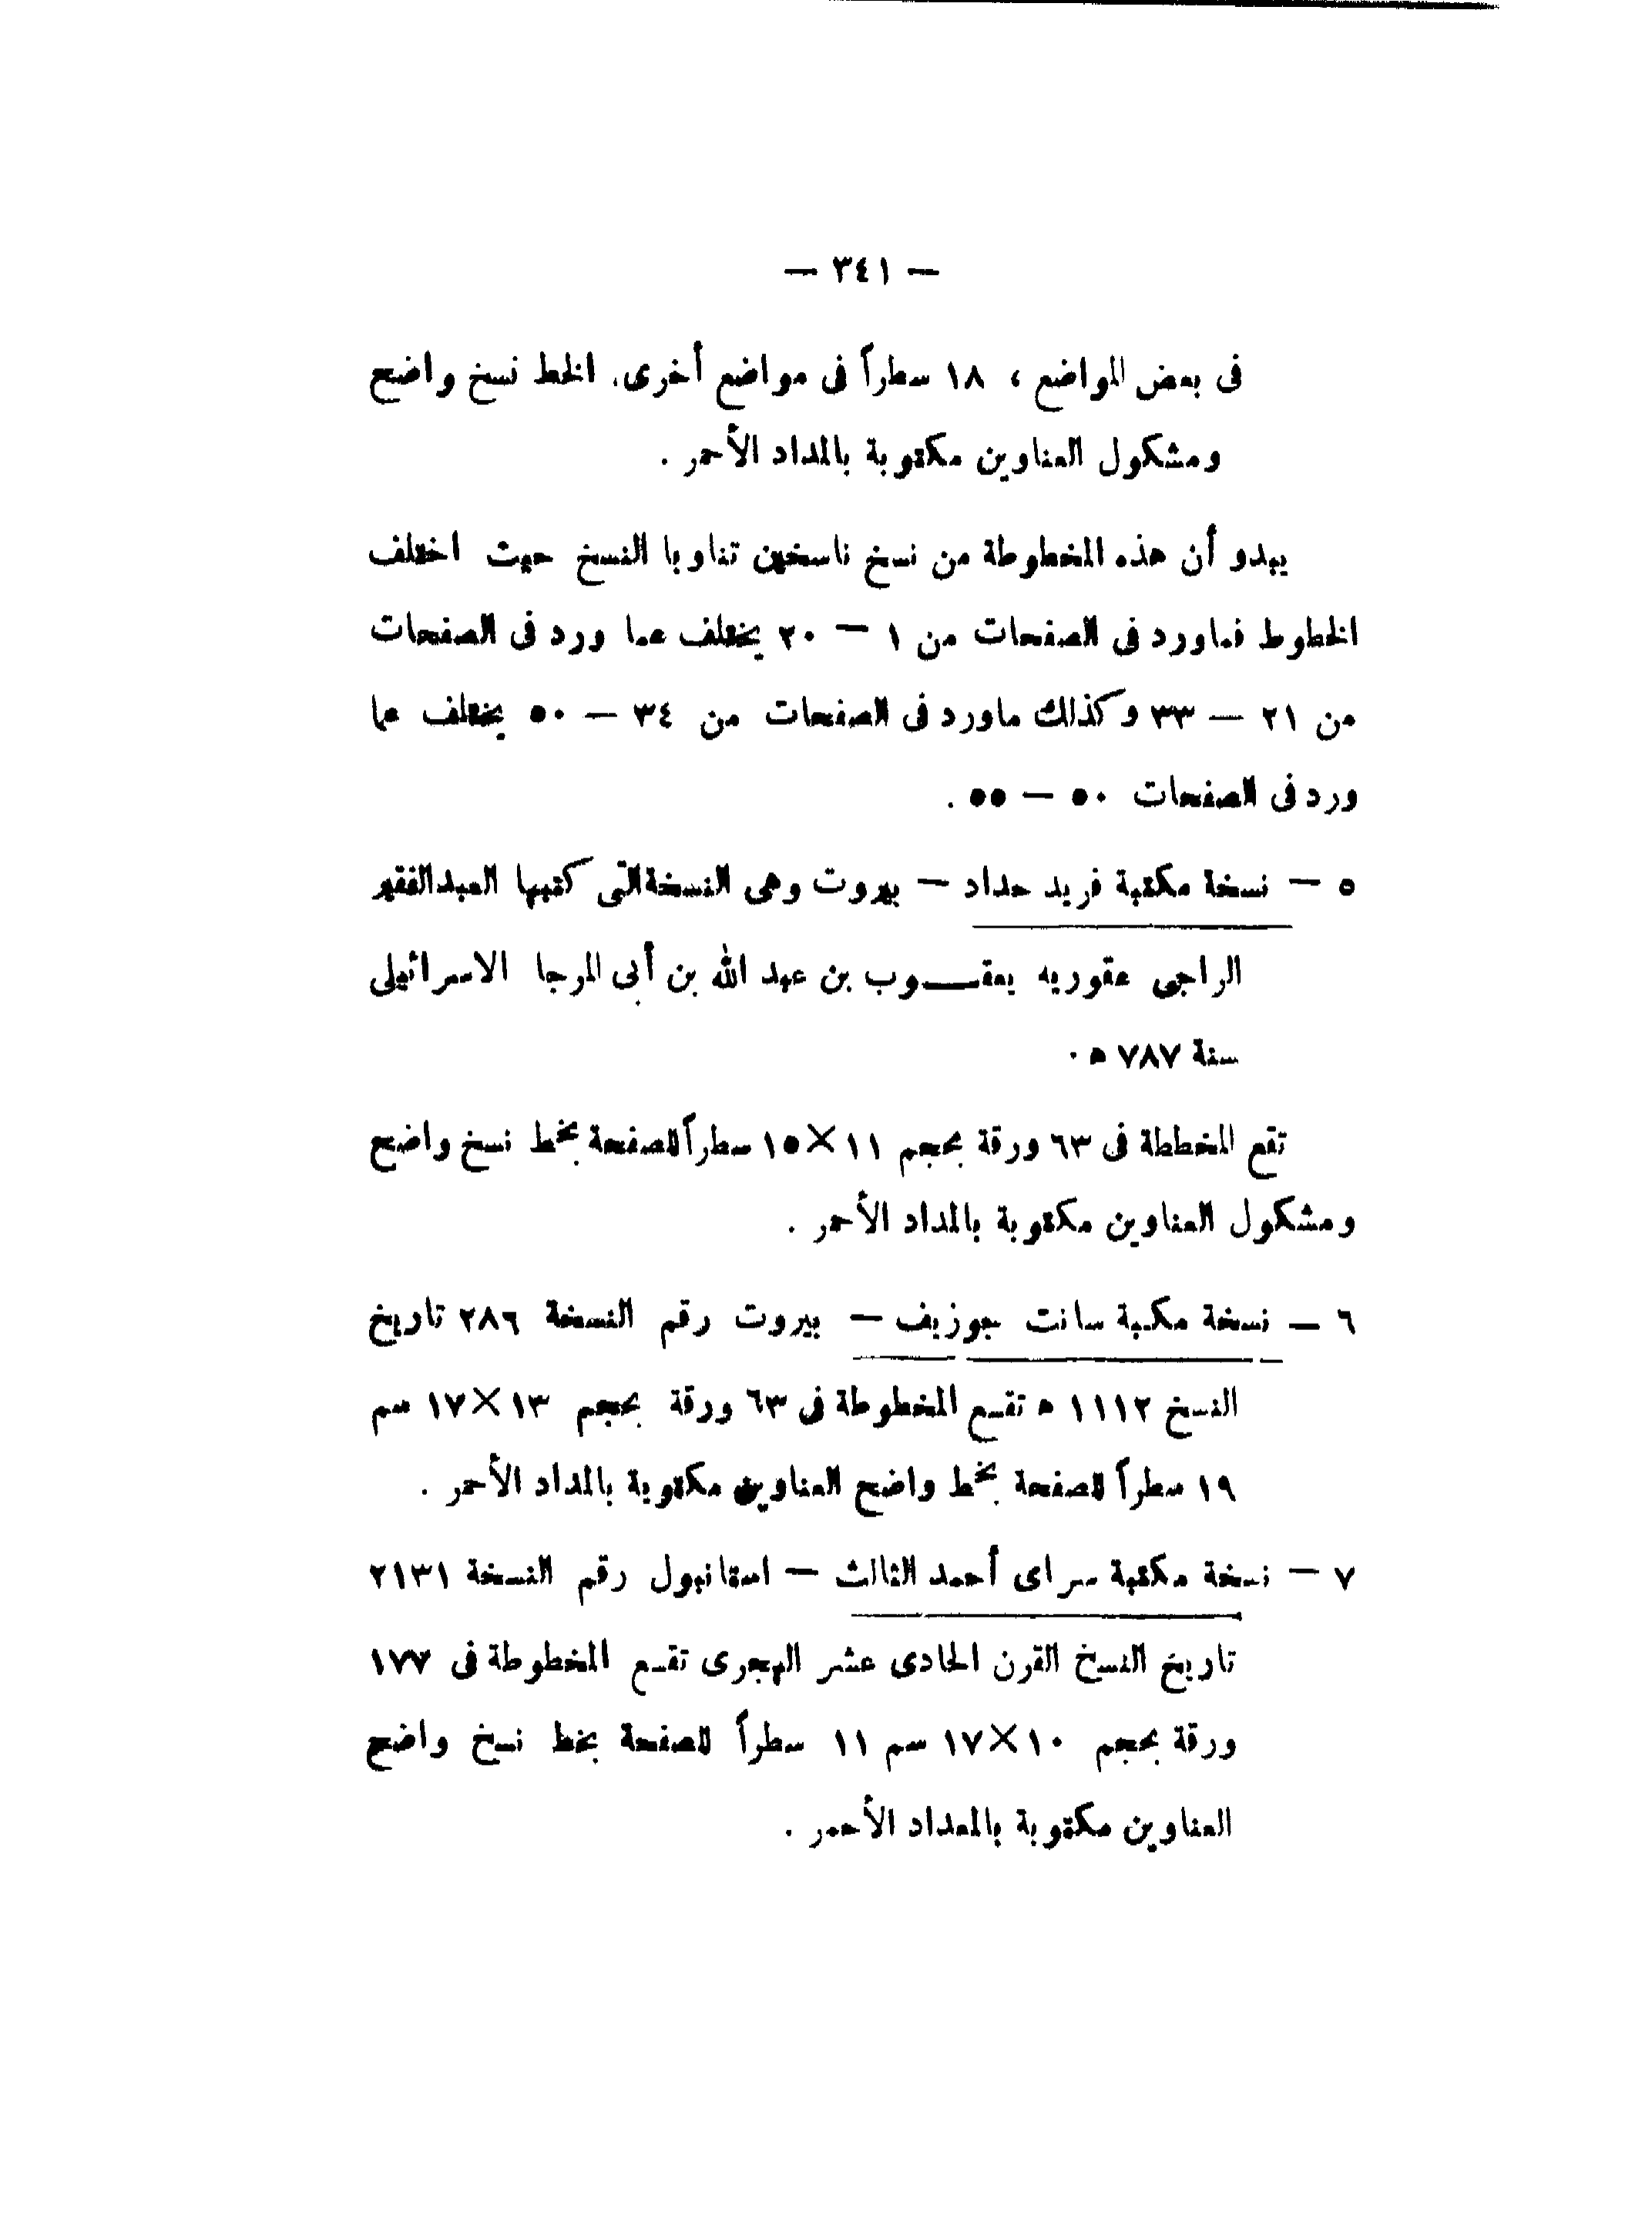 — ٣٤١ —
فى بعض المواضع ، ١٨ سطراً فى مواضع أخرى. الخط نسخ واضح
ومشكول العناوين مكتوبة بالمداد الأحمر .
يبدو أن هذه المخطوطة من نسخ ناسخين تناوبا النسخ حيث اختلف
الخطوط فماورد فى الصفحات من ١ — ٢٠ يختلف عما ورد فى الصفحات
من ٢١ — ٣٣ وكذلك ماورد فى الصفحات من ٣٤ — ٥٠ يختلف عما
ورد فى الصفحات ٥٠ — ٥٥ .
٥ — نسخة مكتبة فريد حداد — بيروت وهى النسخة التى كتبها العبد الفقير
الراجى عفوربه يعقـــوب بن عبد الله بن أبى المرجا الاسرائيلى
سنة ٧٨٧ ه .
تقع المخططة فى ٦٣ ورقة بحجم ١١×١٥ سطراً للصفحة بخط نسخ واضح
ومشكول العناوين مكتوبة بالمداد الأحمر .
٦ — نسخة مكتبة سانت جوزيف — بيروت رقم النسخة ٢٨٦ تاريخ
النسخ ١١١٢ ه تقـع المخطوطة فى ٦٣ ورقة بحجم ١٣×١٧ سم
١٩ سطراً للصفحة بخط واضح العناوين مكتوبة بالمداد الأحمر .
٧ — نسخة مكتبة سراى أحمد الثالث — استانبول رقم النسخة ٢١٣١
تاريخ النسخ القرن الحادى عشر الهجرى تقـع المخطوطة فى ١٧٧
ورقة بحجم ١٠×١٧ سم ١١ سطراً للصفحة بخط نسخ واضح
العناوين مكتوبة بالمداد الأحمر .